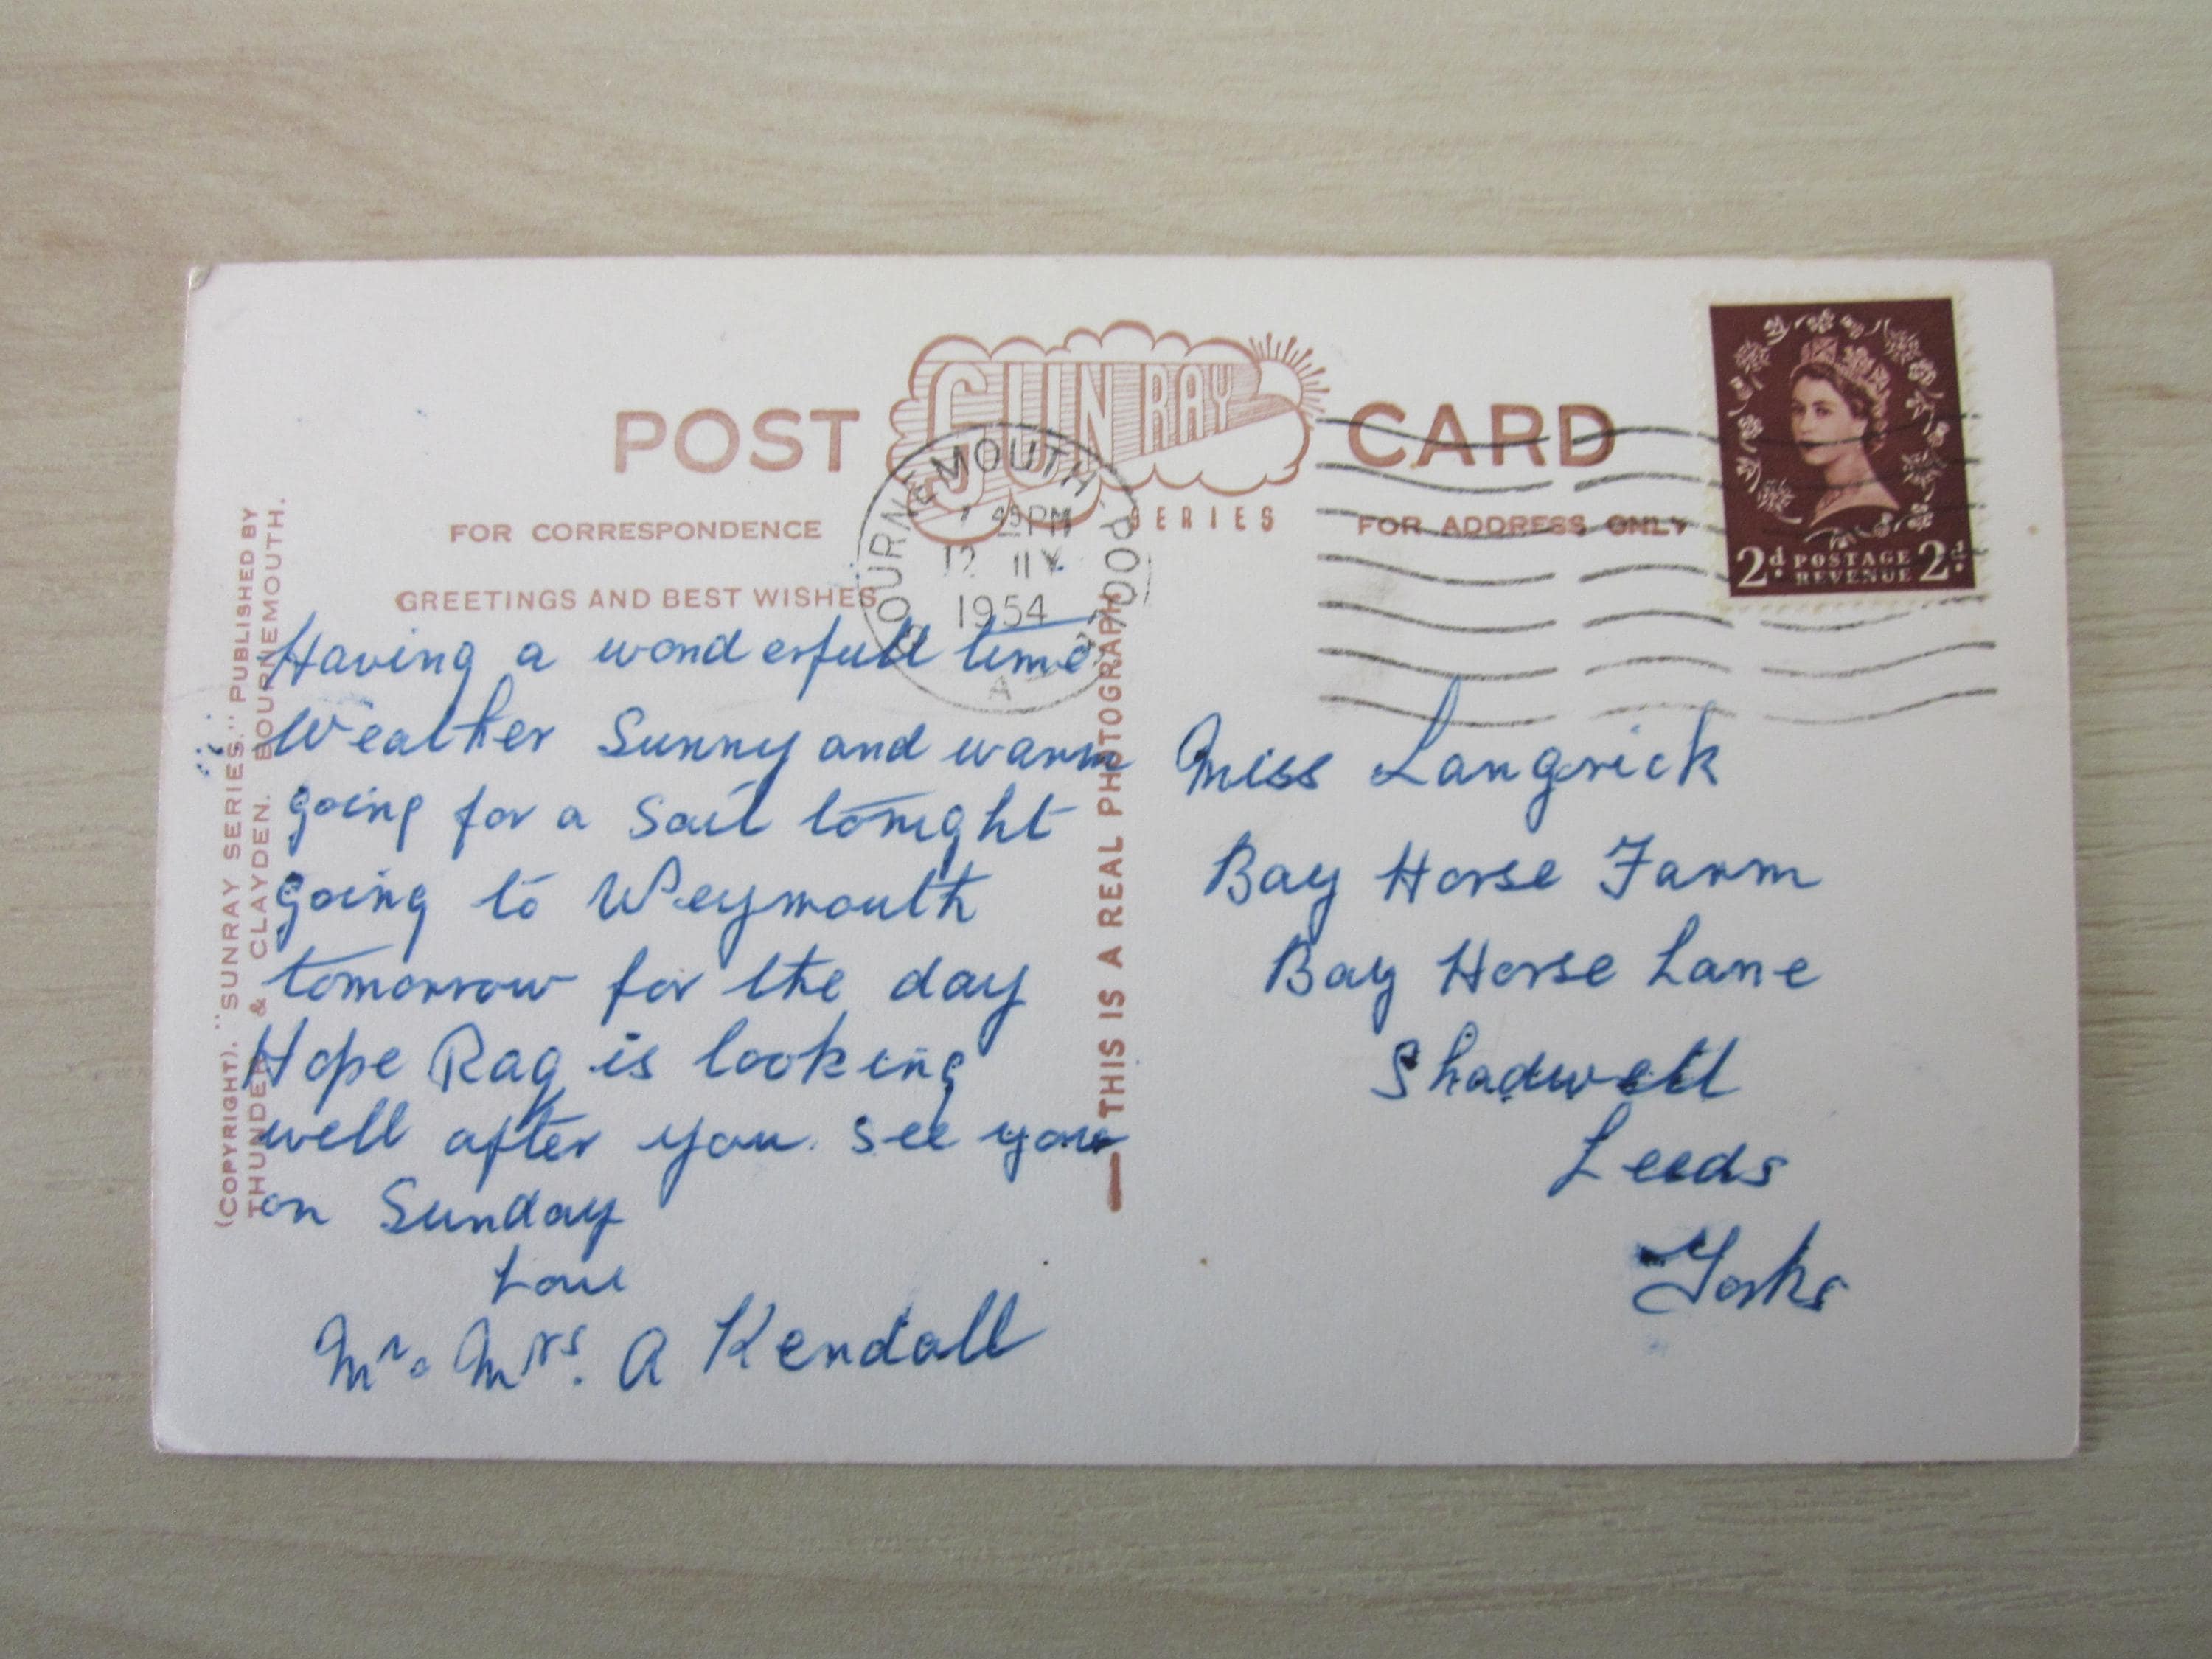 POST SUN RAY CARD
SERIES
FOR CORRESPONDENCE
FOR ADDRESS ONLY
GREETINGS AND BEST WISHES
BOURNEMOUTH POOLE
45 PM
12
1954
A
2d. POSTAGE 2d.
REVENUE
(COPYRIGHT). "SUNRAY SERIES." PUBLISHED BY
THUNDER & CLAYDEN. BOURNEMOUTH.
THIS IS A REAL PHOTOGRAPH
Having a wonderfull time
Weather Sunny and warm
going for a Sail tonight
going to Weymouth
tomorrow for the day
Hope Rag is looking
well after you. See you
on Sunday
Love
Mr. Mrs. A Kendall
Miss Langrick
Bay Horse Farm
Bay Horse Lane
Shadwell
Leeds
Yorks